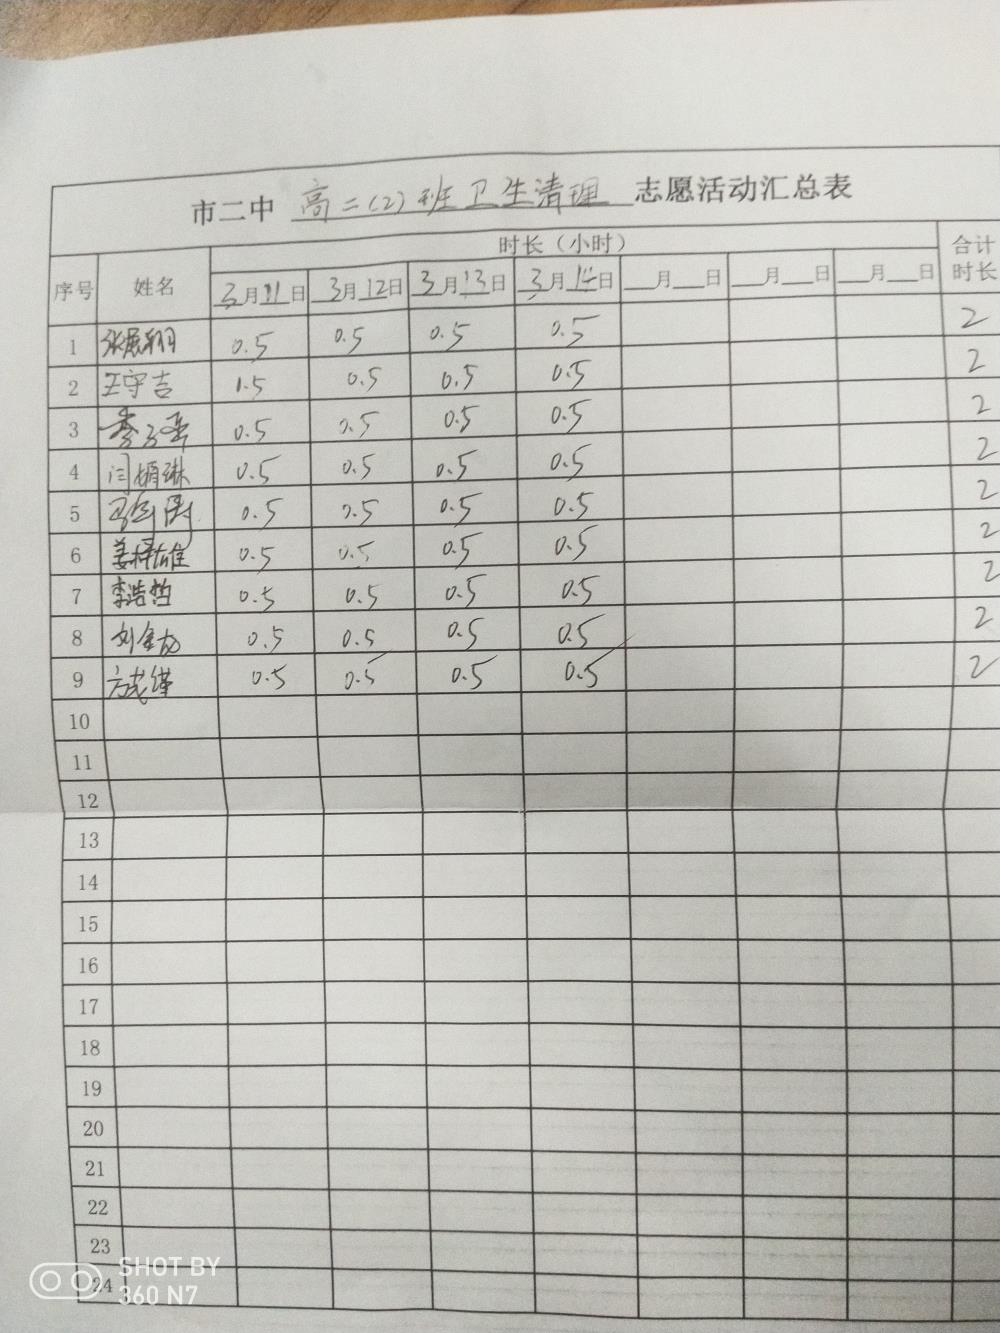 市二中 高二(2)班卫生清理 志愿活动汇总表
序号 姓名 时长（小时） 合计时长
3月11日 3月12日 3月13日 3月14日 __月__日 __月__日 __月__日
1 张展翔 0.5 0.5 0.5 0.5 2
2 王守吉 1.5 0.5 0.5 0.5 2
3 李子 0.5 0.5 0.5 0.5 2
4 闫娟琳 0.5 0.5 0.5 0.5 2
5 0.5 0.5 0.5 0.5 2
6 姜梓雄 0.5 0.5 0.5 0.5 2
7 李浩哲 0.5 0.5 0.5 0.5 2
8 刘金龙 0.5 0.5 0.5 0.5 2
9 方 0.5 0.5 0.5 0.5 2
10
11
12
13
14
15
16
17
18
19
20
21
22
23
24
SHOT BY
360 N7